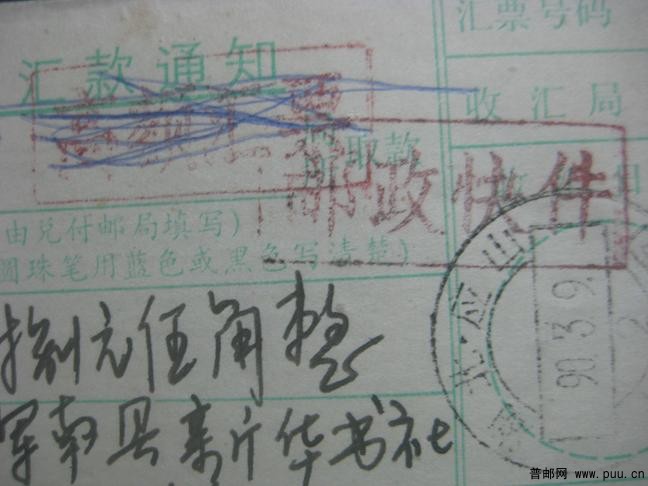 汇票号码
汇款通知
收汇局
取款
邮政快件
由兑付邮局填写)
圆珠笔用蓝色或黑色写清楚)
湖北·应山
90.3.9
捌元伍角整
县新华书社
普邮网 www.puu.cn